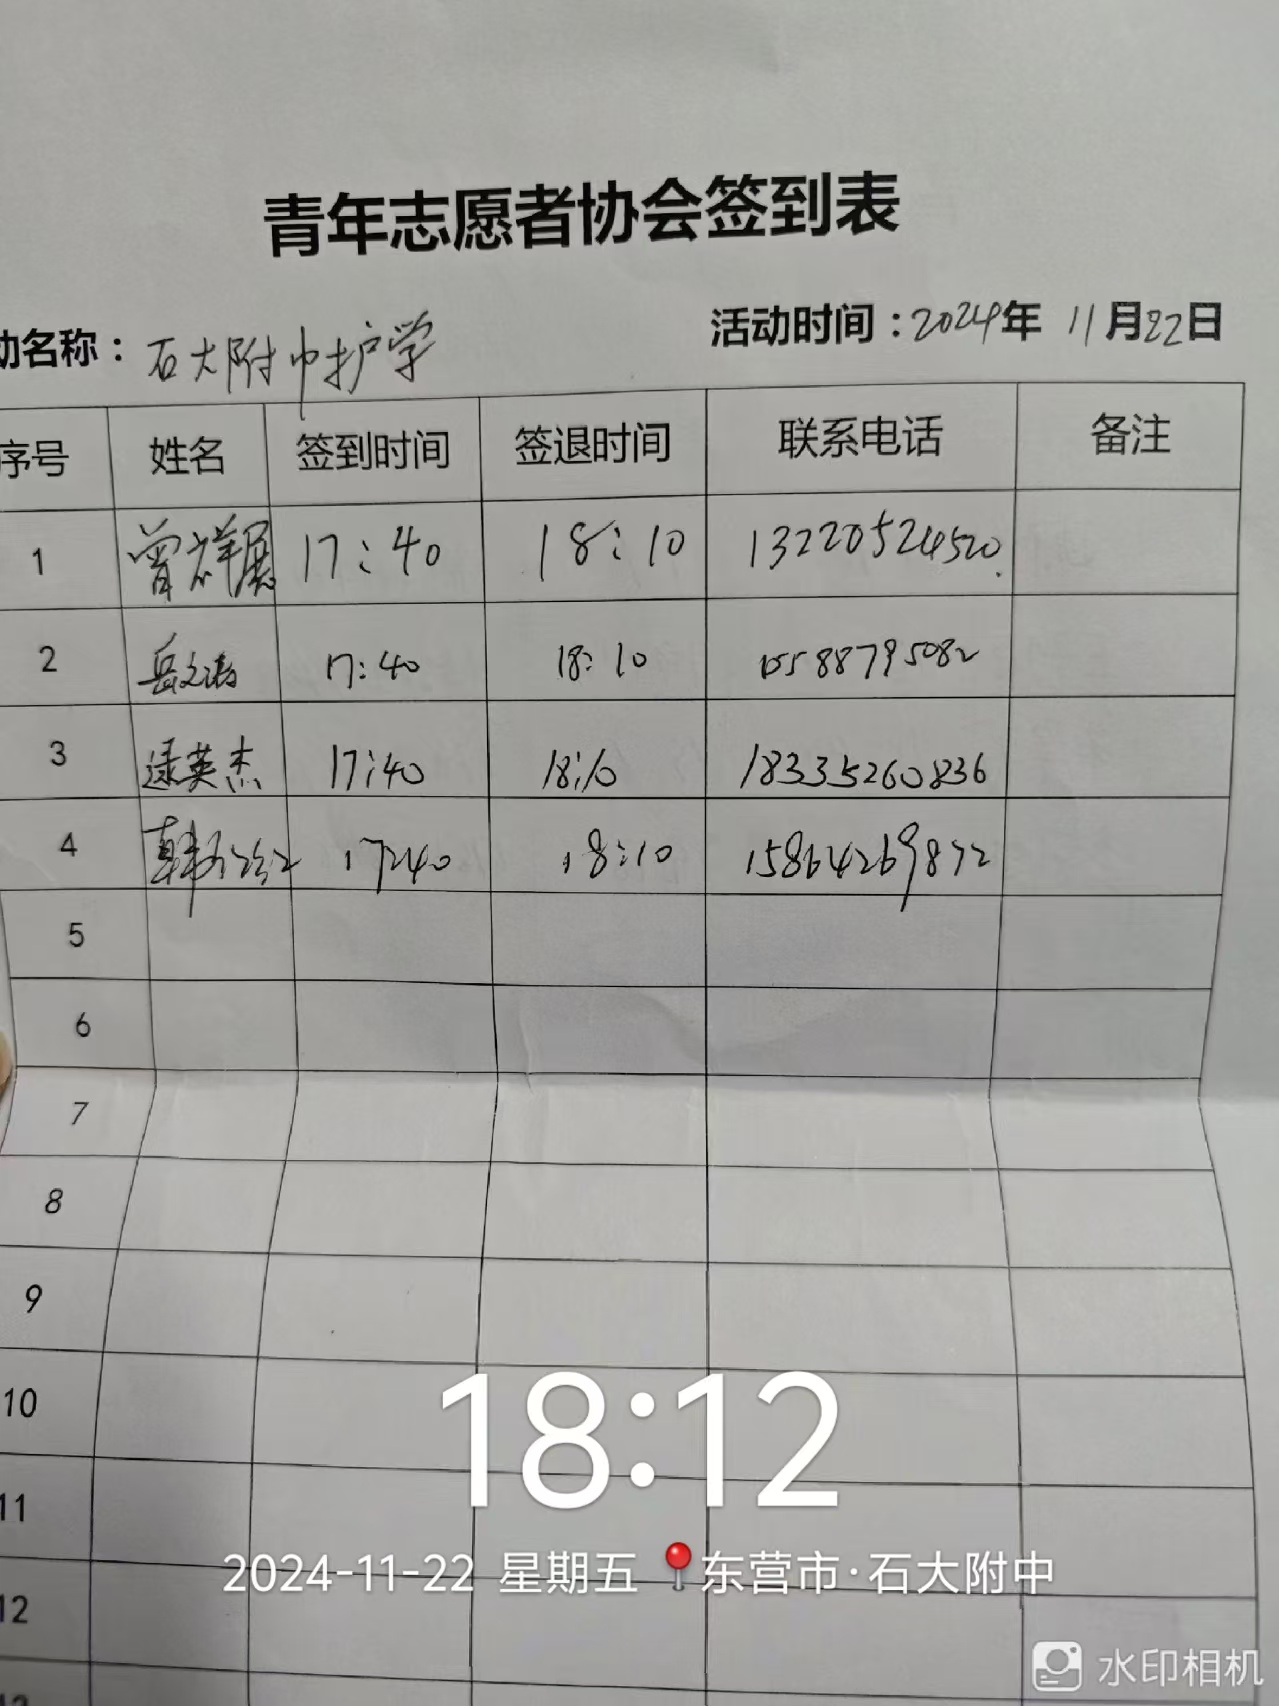 青年志愿者协会签到表
动名称：石大附中护学 活动时间：2024年 11月22日
序号 姓名 签到时间 签退时间 联系电话 备注
1 曾祥展 17:40 18:10 13220524520
2 岳文涛 17:40 18:10 15588795082
3 逯英杰 17:40 18:10 18335260836
4 韩 17:40 18:10 15864269872
5
6
7
8
9
10
11
12
13
18:12
2024-11-22 星期五 东营市·石大附中
水印相机